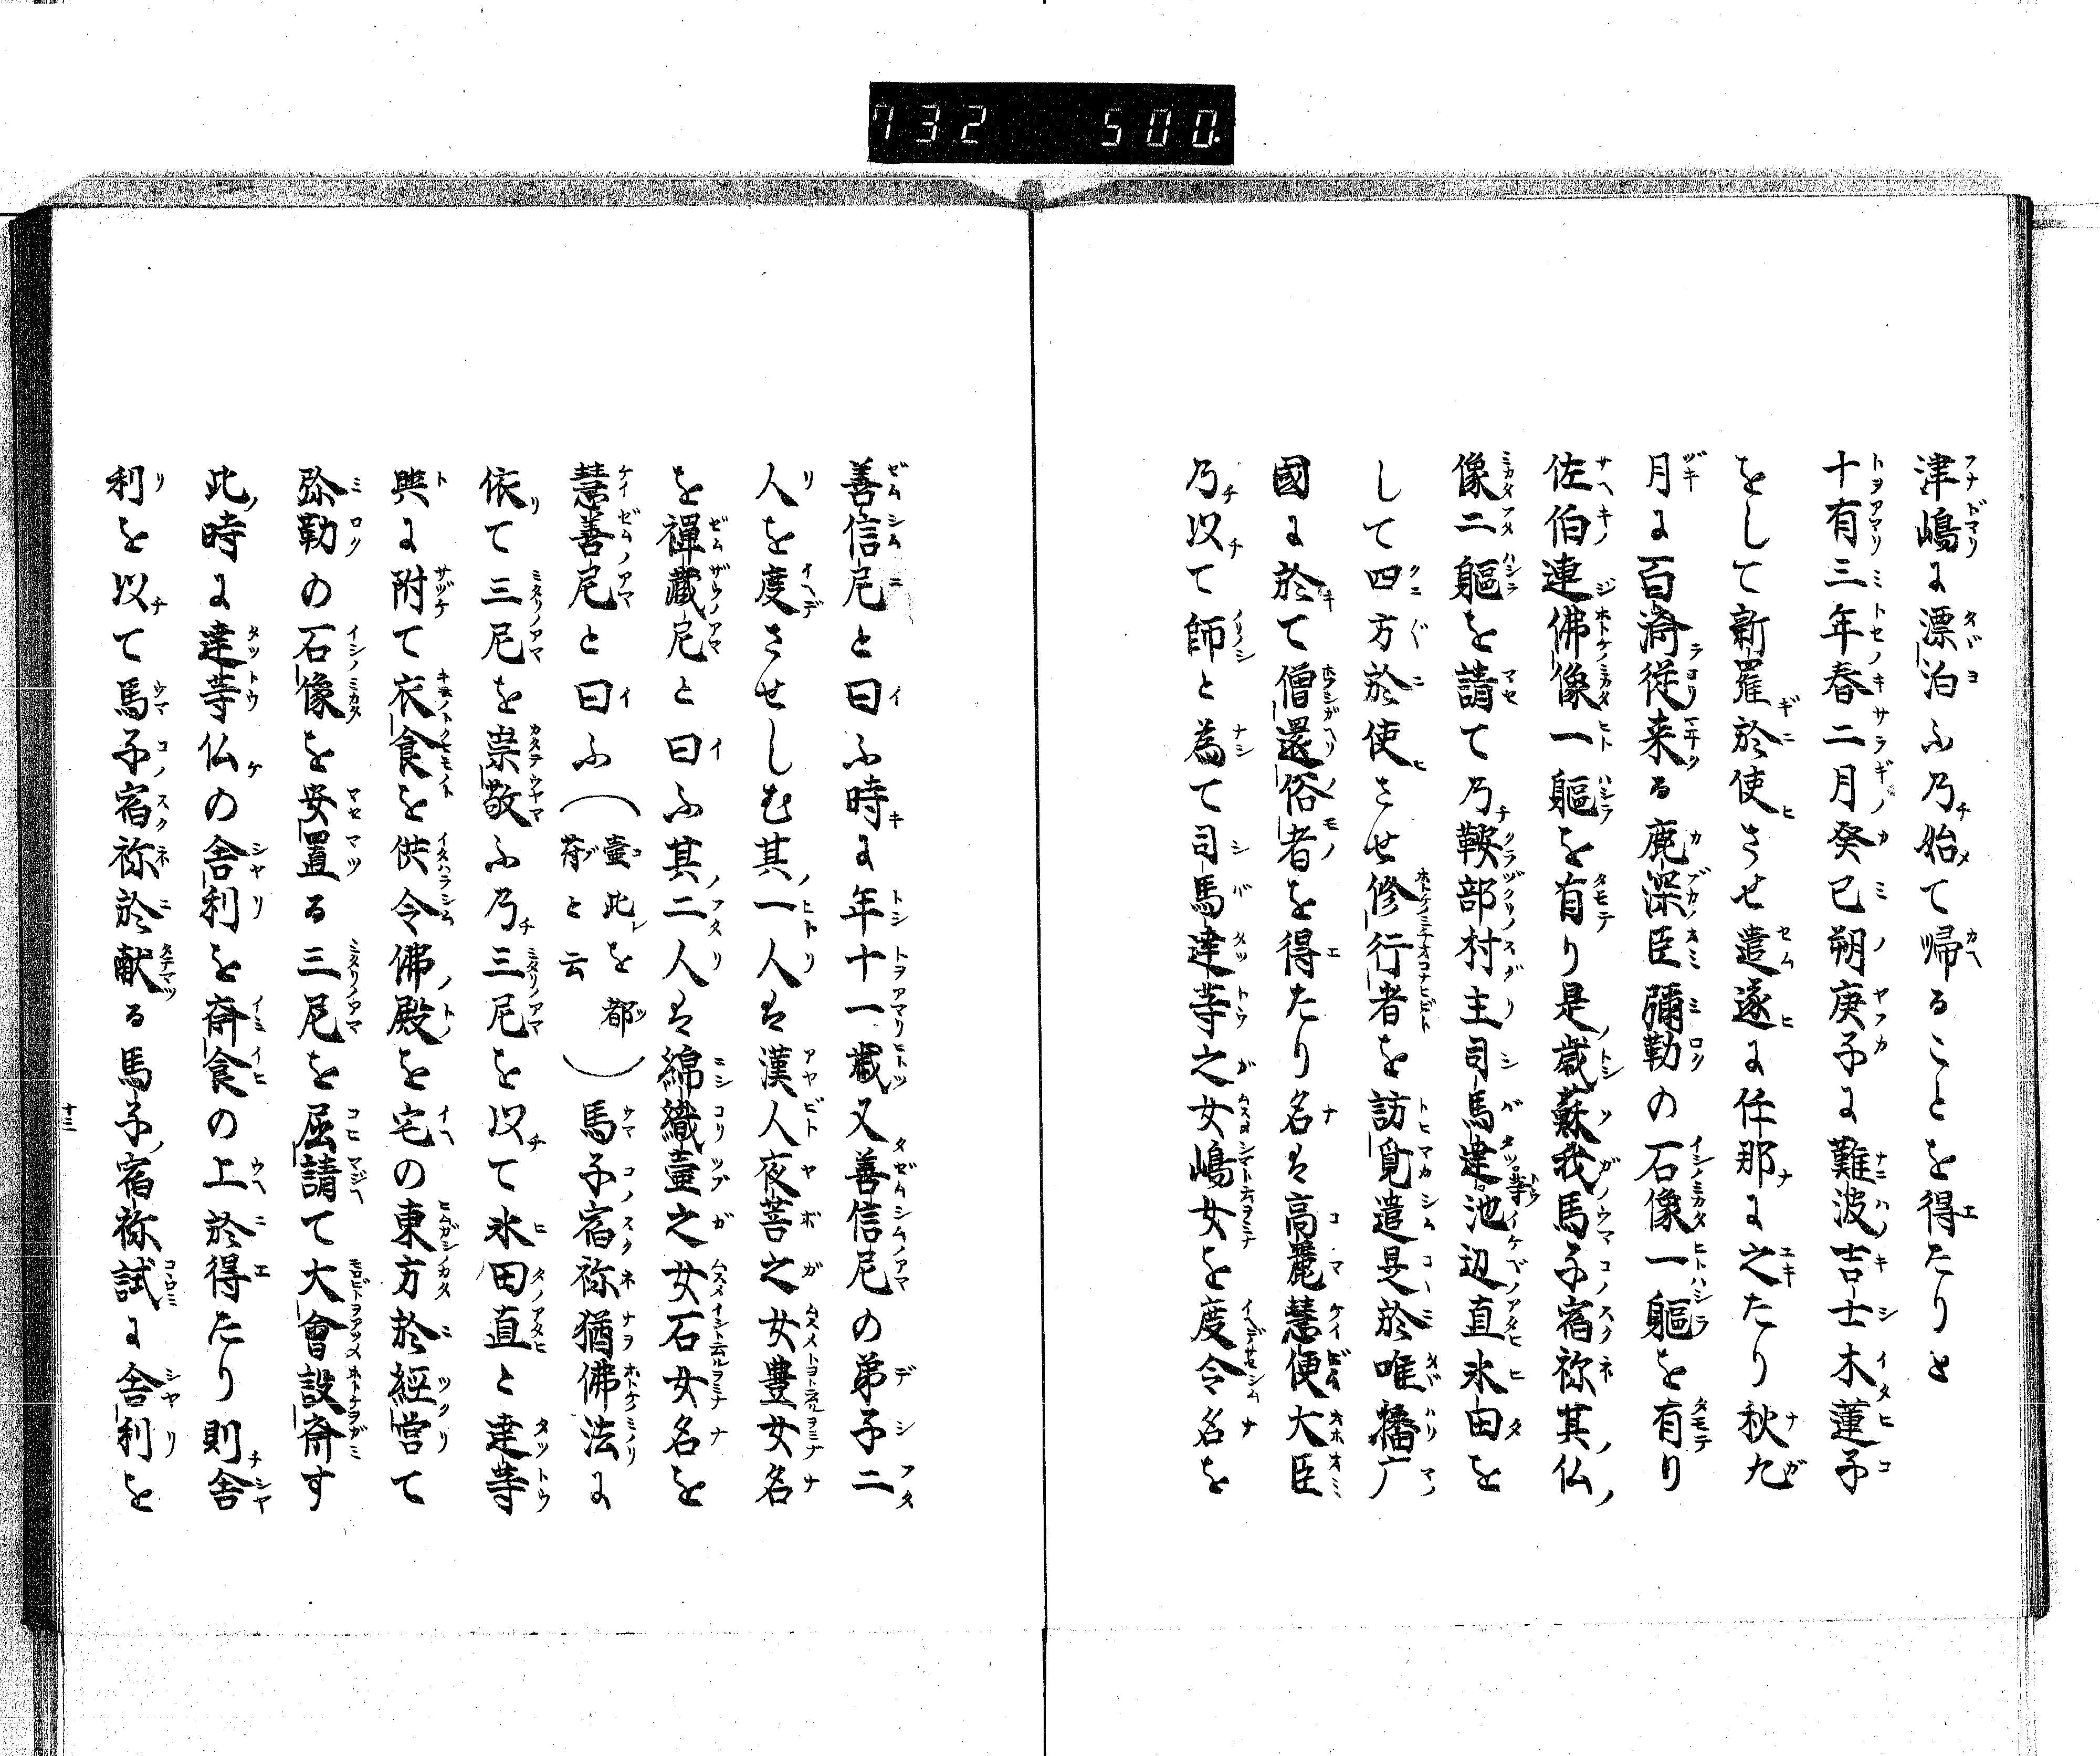 732 500.
津嶋に漂泊ふ乃始て帰ることを得たりと
十有三年春二月癸巳朔庚子に難波吉士木蓮子
をして新羅於使させ遣遂に任那に之たり秋九
月に百濟従来る鹿深臣彌勒の石像一軀を有り
佐伯連佛像一軀を有り是歳蘇我馬子宿祢其仏
像二軀を請て乃鞍部村主司馬達等池辺直氷田を
して四方於使させ修行者を訪覓遣是於唯播广
國に於て僧還俗者を得たり名は高麗慧便大臣
乃以て師と為て司馬達等之女嶋女を度令名を
善信尼と曰ふ時に年十一歳又善信尼の弟子二
人を度させしむ其一人は漢人夜菩之女豊女名
を禪藏尼と曰ふ其二人は綿織壷之女石女名を
慧善尼と曰ふ(壷此を都符と云)馬子宿祢猶佛法に
依て三尼を崇敬ふ乃三尼を以て氷田直と達等
與に附て衣食を供令佛殿を宅の東方於經営て
弥勒の石像を安置る三尼を屈請て大會設斎す
此時に達等仏の舎利を斎食の上於得たり則舎
利を以て馬子宿祢於献る馬子宿祢試に舎利を
十三